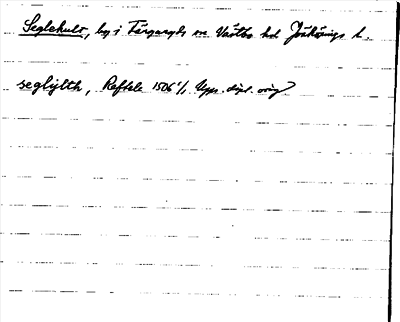 Seglehult, by i Färgaryds sn Västbo hd Jönköpings l.
seglijlth, Reftele 1506 2/1 Upps. dipl. orig